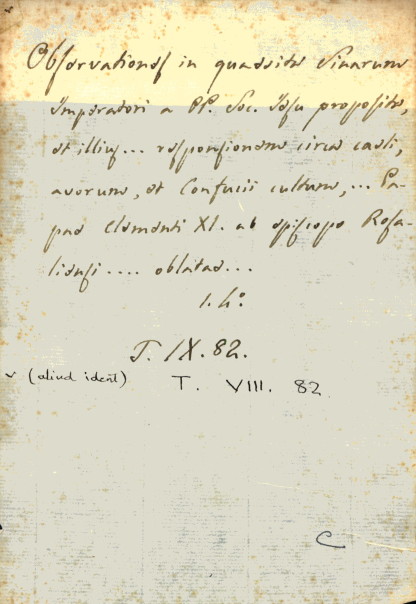 Observationes in quaesita Sinarum
Imperatori a PP. Soc. Jesu proposita,
et illius... responsionem circa caeli,
avorum, et Confucii cultum,... Pa-
pae Clementi XI. ab episcopo Rosa-
liensi .... oblatae...
1. 4º
T. IX. 82.
(aliud ident) T. VIII. 82
C